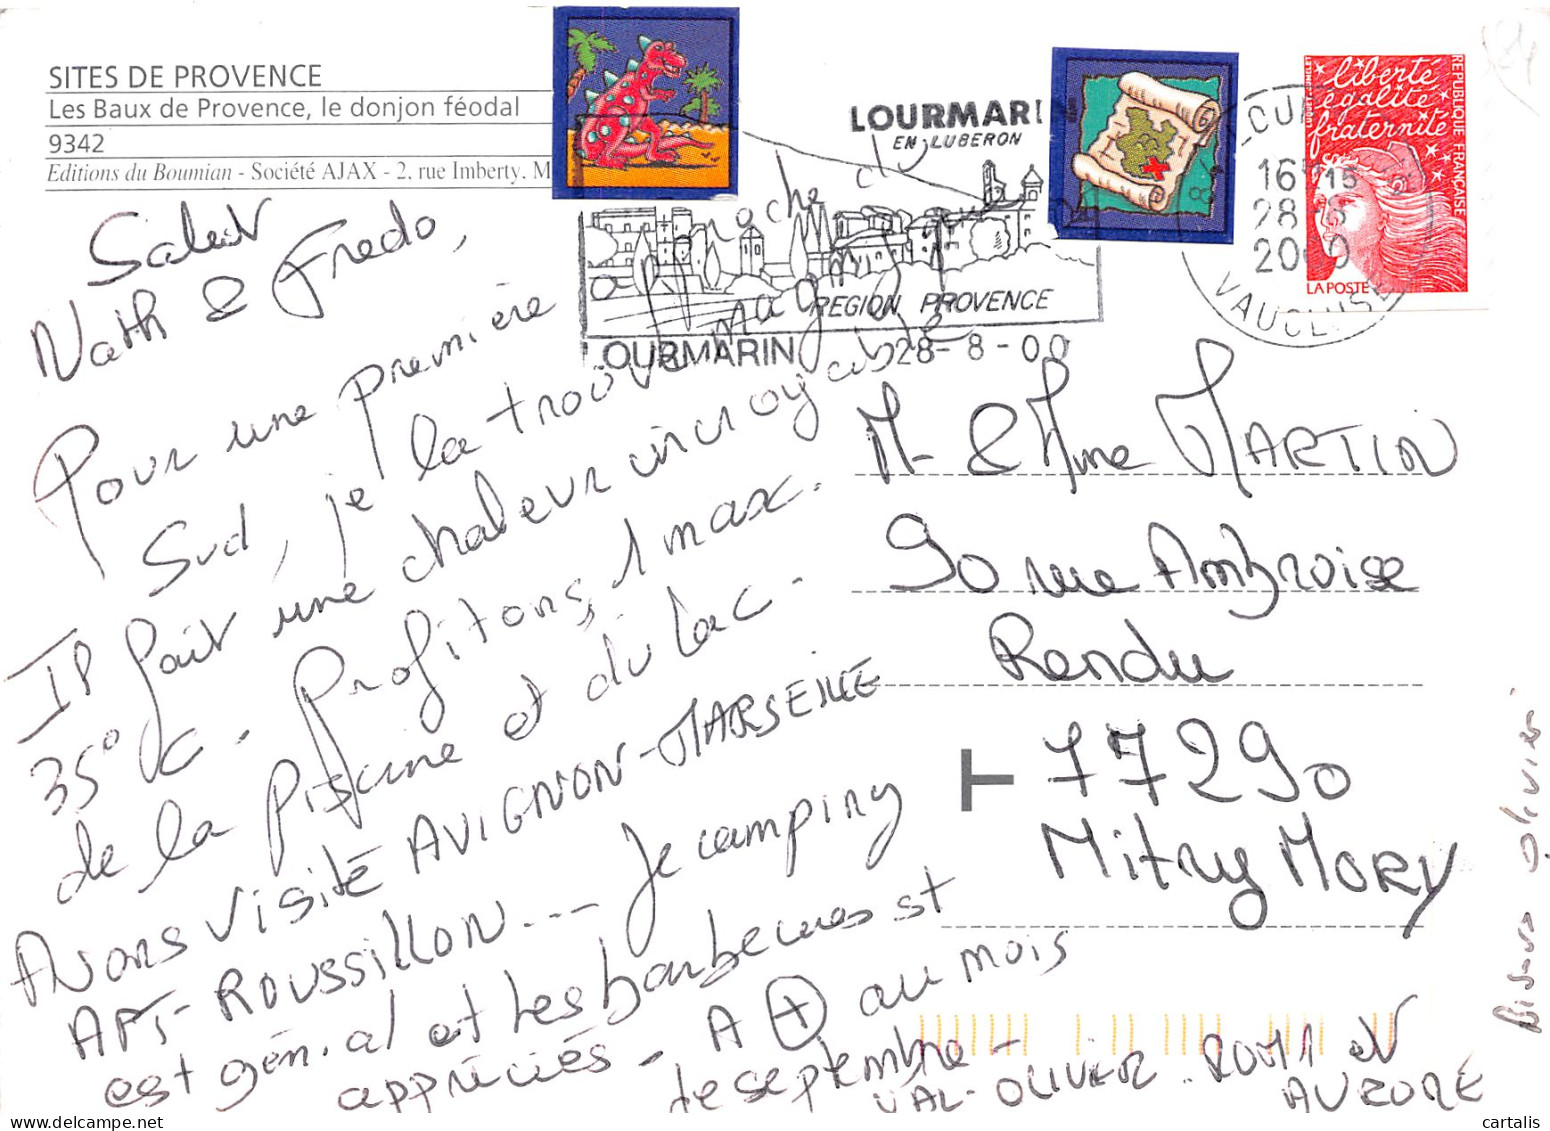 SITES DE PROVENCE
Les Baux de Provence, le donjon féodal
9342
Editions du Boumian - Société AJAX - 2, rue Imberty, M
LOURMARI
EN LUBERON
REGION PROVENCE
OURMARIN 28-8-00
16H15
28-8
2000
VAUCLUSE
liberté
égalité
fraternité
REPUBLIQUE FRANÇAISE
LA POSTE
Salut
Nath & Fredo,
Pour une première approche du
Sud, je la trouve magnifique
Il fait une chaleur incroyable
35°C. Profitons, 1 max.
de la piscine et du lac.
Avons visité AVIGNON-MARSEILLE
APT-ROUSSILLON... Je camping
est gén.al et les barbecues st
appréciés - A + au mois
de septembre -
VAL-OLIVIER-ROM1 et
AURORE
M- & Mme MARTIN
90 rue Ambroise
Rendu
T
77290
Mitry MORY
Bisous Olivier
cartalis